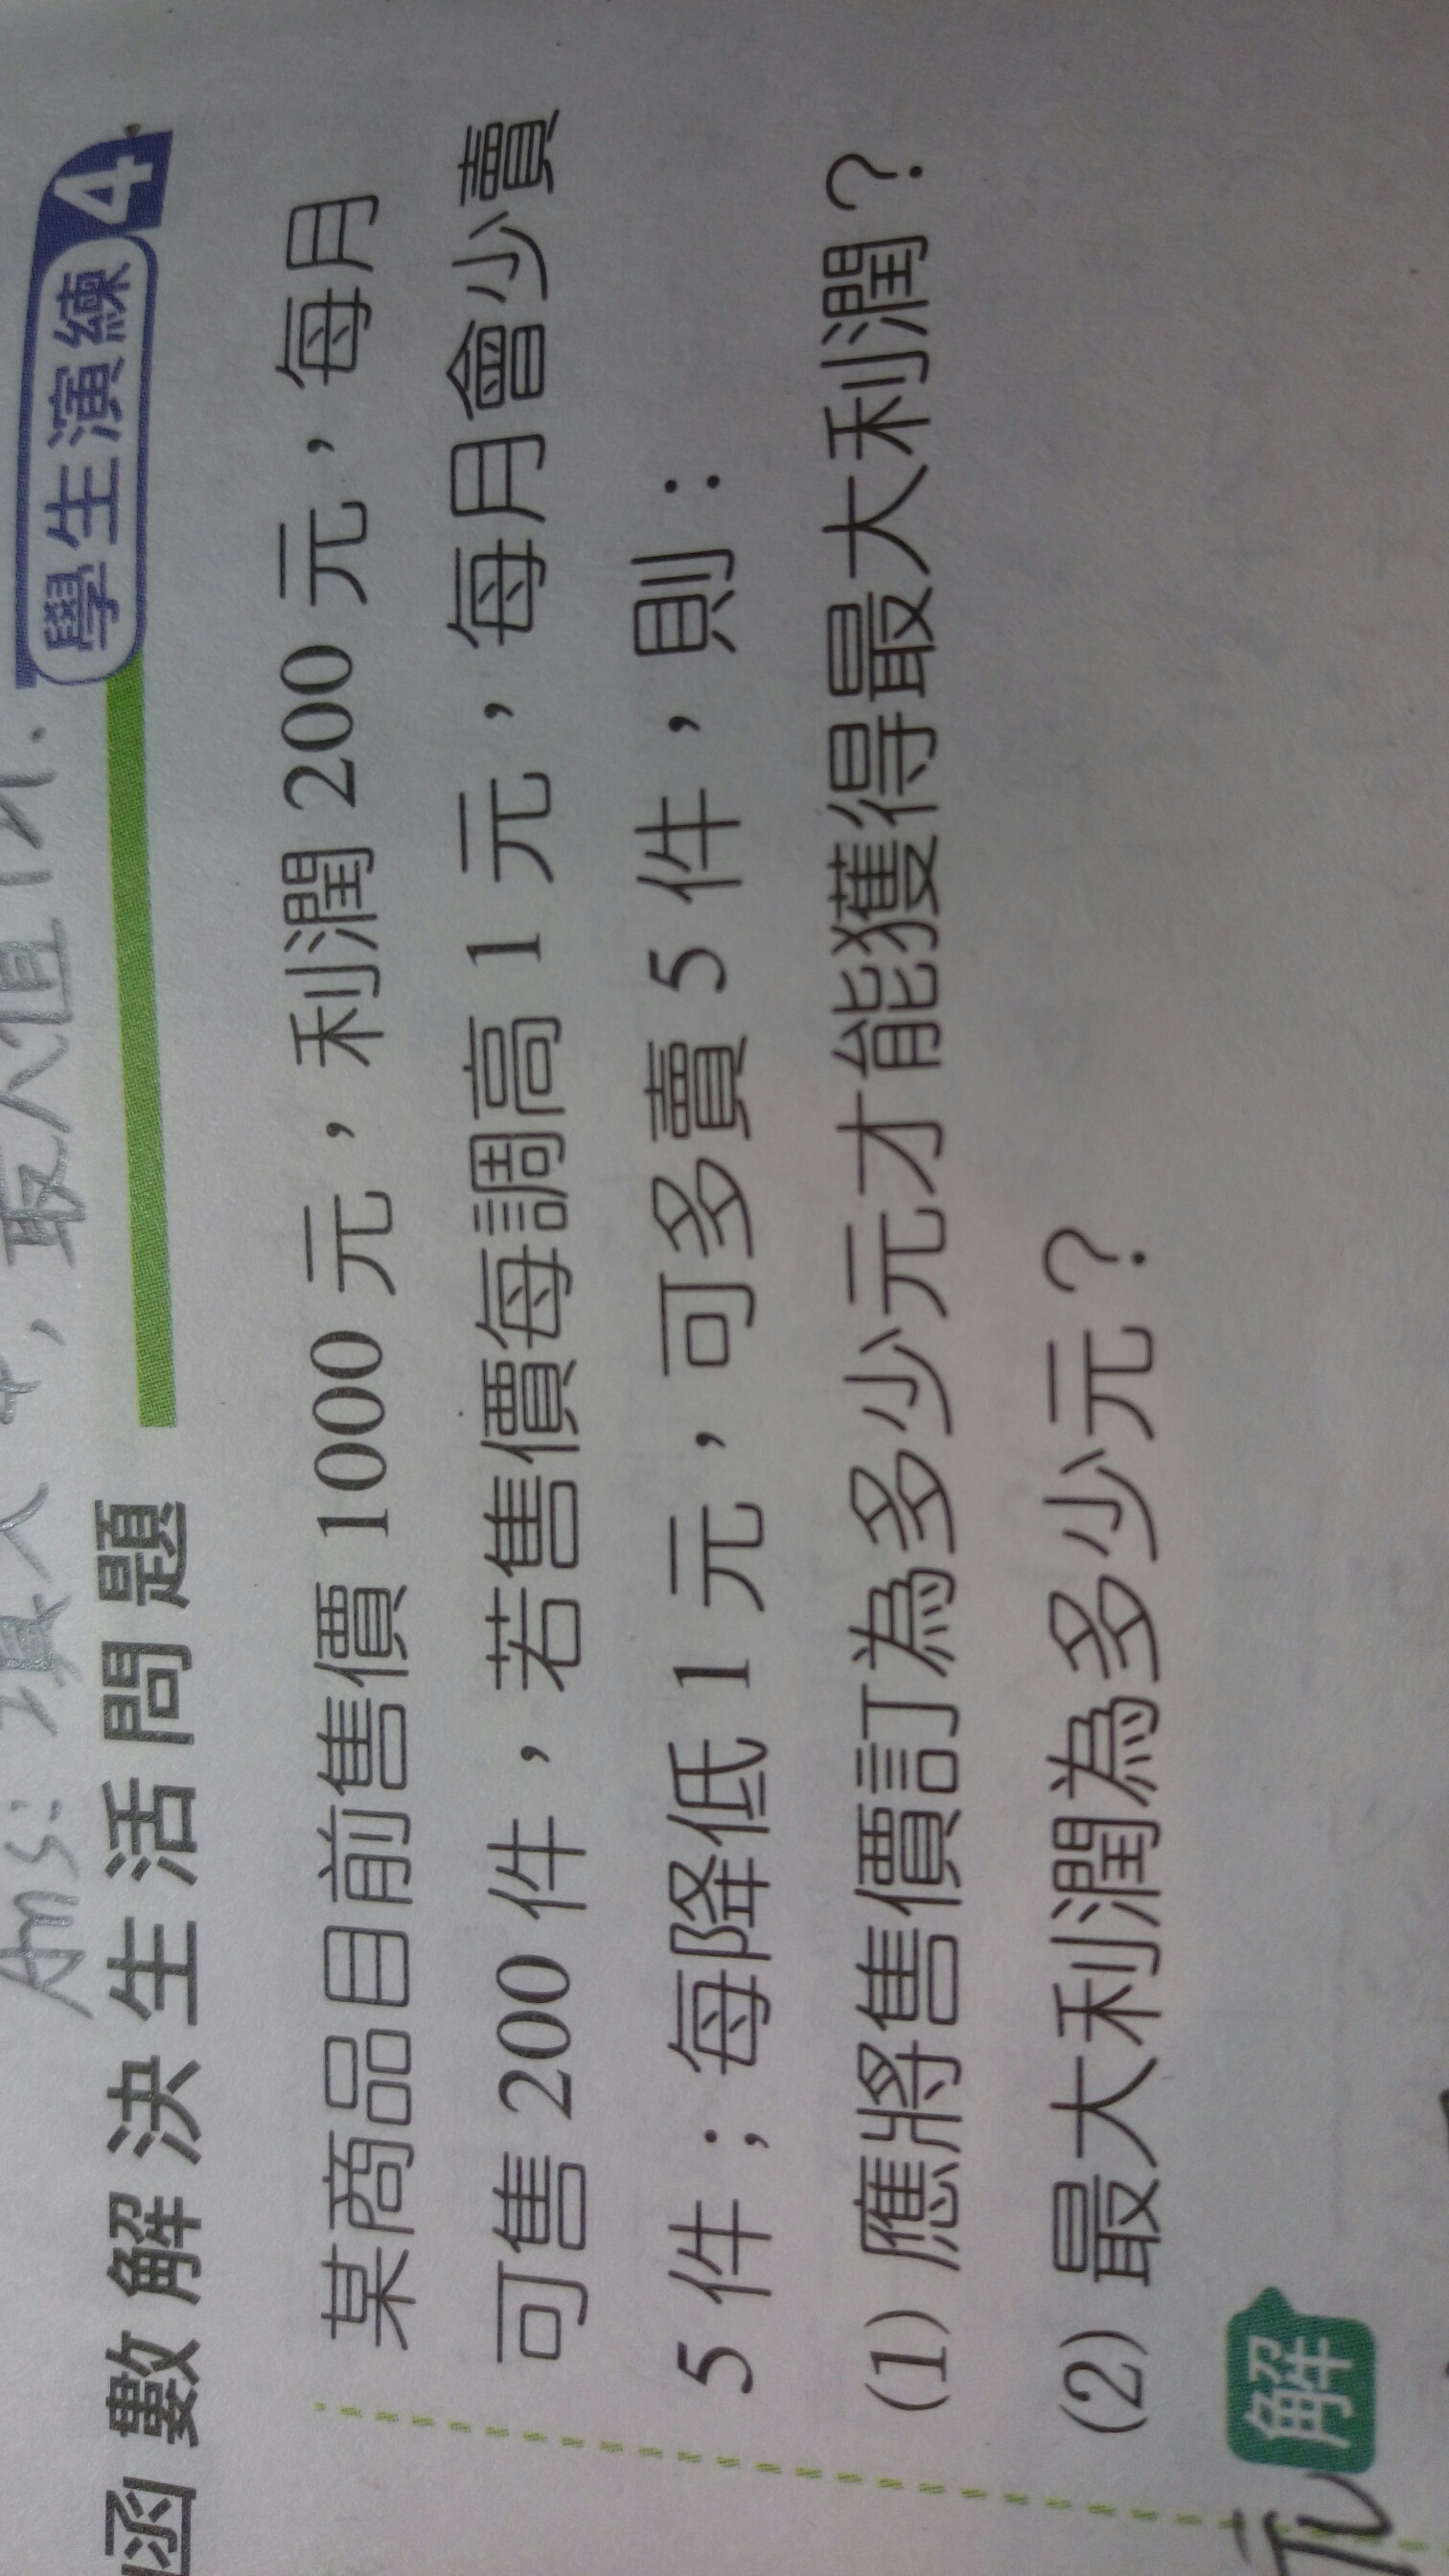 Ans:
函數解決生活問題 學生演練 4
某商品目前售價 1000 元，利潤 200 元，每月
可售 200 件，若售價每調高 1 元，每月會少賣
5 件；每降低 1 元，可多賣 5 件，則：
(1) 應將售價訂為多少元才能獲得最大利潤？
(2) 最大利潤為多少元？
解
元